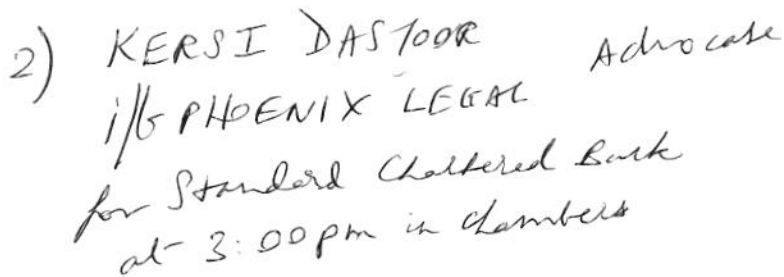 2) KERSI DASTOOR Advocate
i/b PHOENIX LEGAL
for Standard Chartered Bank
at 3:00 pm in chambers